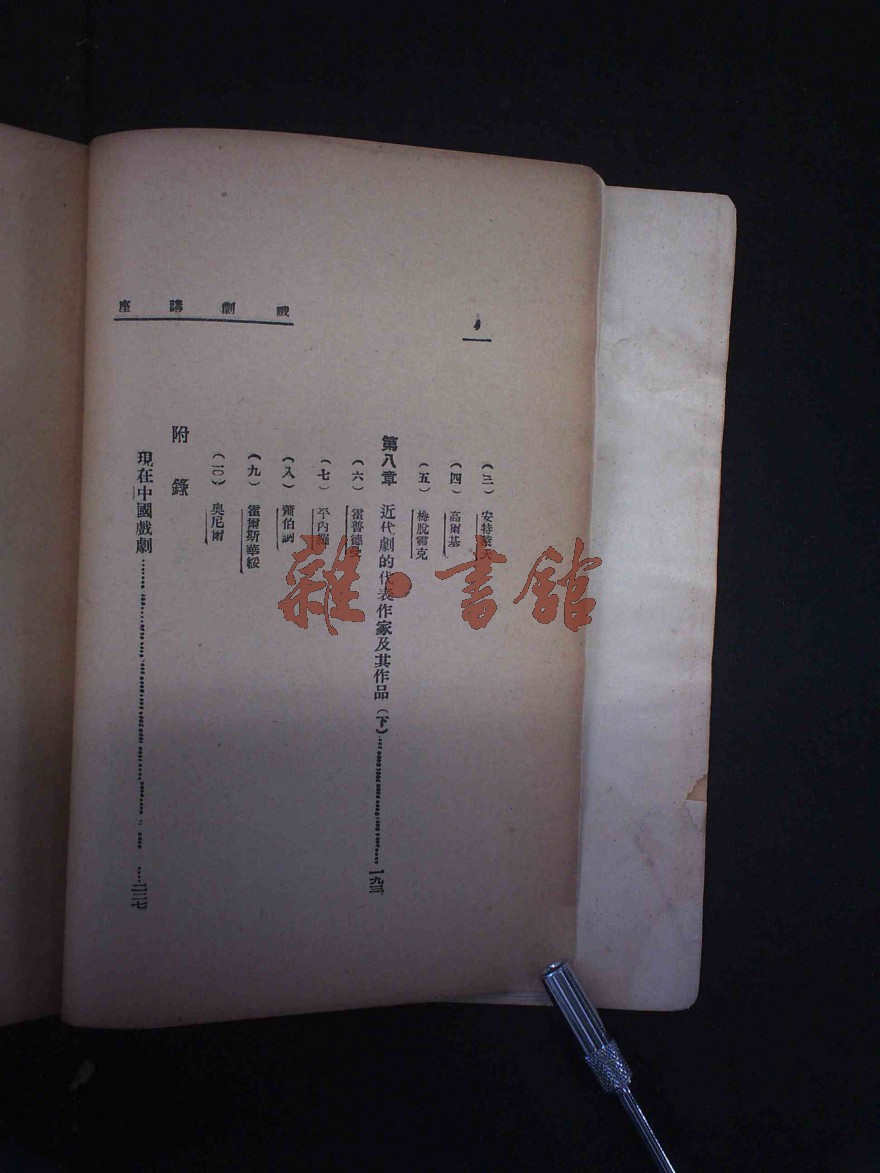 戲劇講座
(三) 安特列夫
(四) 高爾基
(五) 梅脫靈克
第八章 近代劇的代表作家及其作品(下)……一九三
(六) 霍普德曼
(七) 平內羅
(八) 蕭伯訥
(九) 霍爾斯華綏
(一〇) 奧尼爾
附錄
現在中國戲劇……二二七
雜·書館